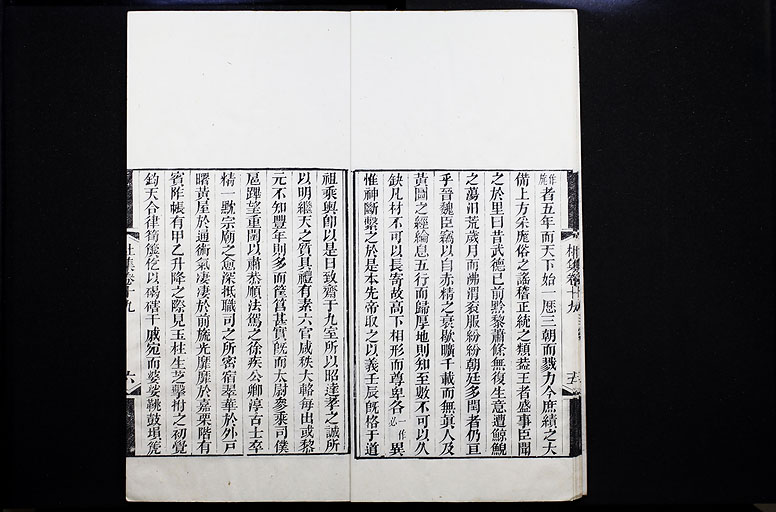 作施者五年而天下始一歷三朝而戮力今庶績之大
備上方采厖俗之謠稽正統之類恭王者盛事臣聞
之於里曰昔武德已前黔黎蕭條無復生意遭鯨鯢
之蕩汨荒歲月而沸渭袞服紛紛朝廷多閏者仍亘
乎晉魏臣竊以自赤精之衰歇曠千載而無真人及
黃圖之經綸息五行而歸厚地則知至數不可以久
缺凡材不可以長寄故高下相形而尊卑各一作必異
惟神斷繫之於是本先帝取之以義壬辰旣格于道
祖乘輿卽以是日致齋于九室所以昭達孝之誠所
以明繼天之質具禮有素六官咸秩大輅每出或黎
元不知豐年則多而筐筥甚實旣而太尉參乘司僕
扈蹕望重闈以肅恭順法駕之徐疾公卿淳古士卒
精一黕宗廟之愈深抵職司之所密宿翠華於外戶
曙黃屋於通術氣凄凄於前旒光靡靡於嘉栗階有
賓阼帳有甲乙升降之際見玉柱生芝擊拊之初覺
鈞天合律筍簴仡以碣磍干戚宛而婆娑鞉鼓塤箎
杜集卷十九
六
杜集卷十九
五